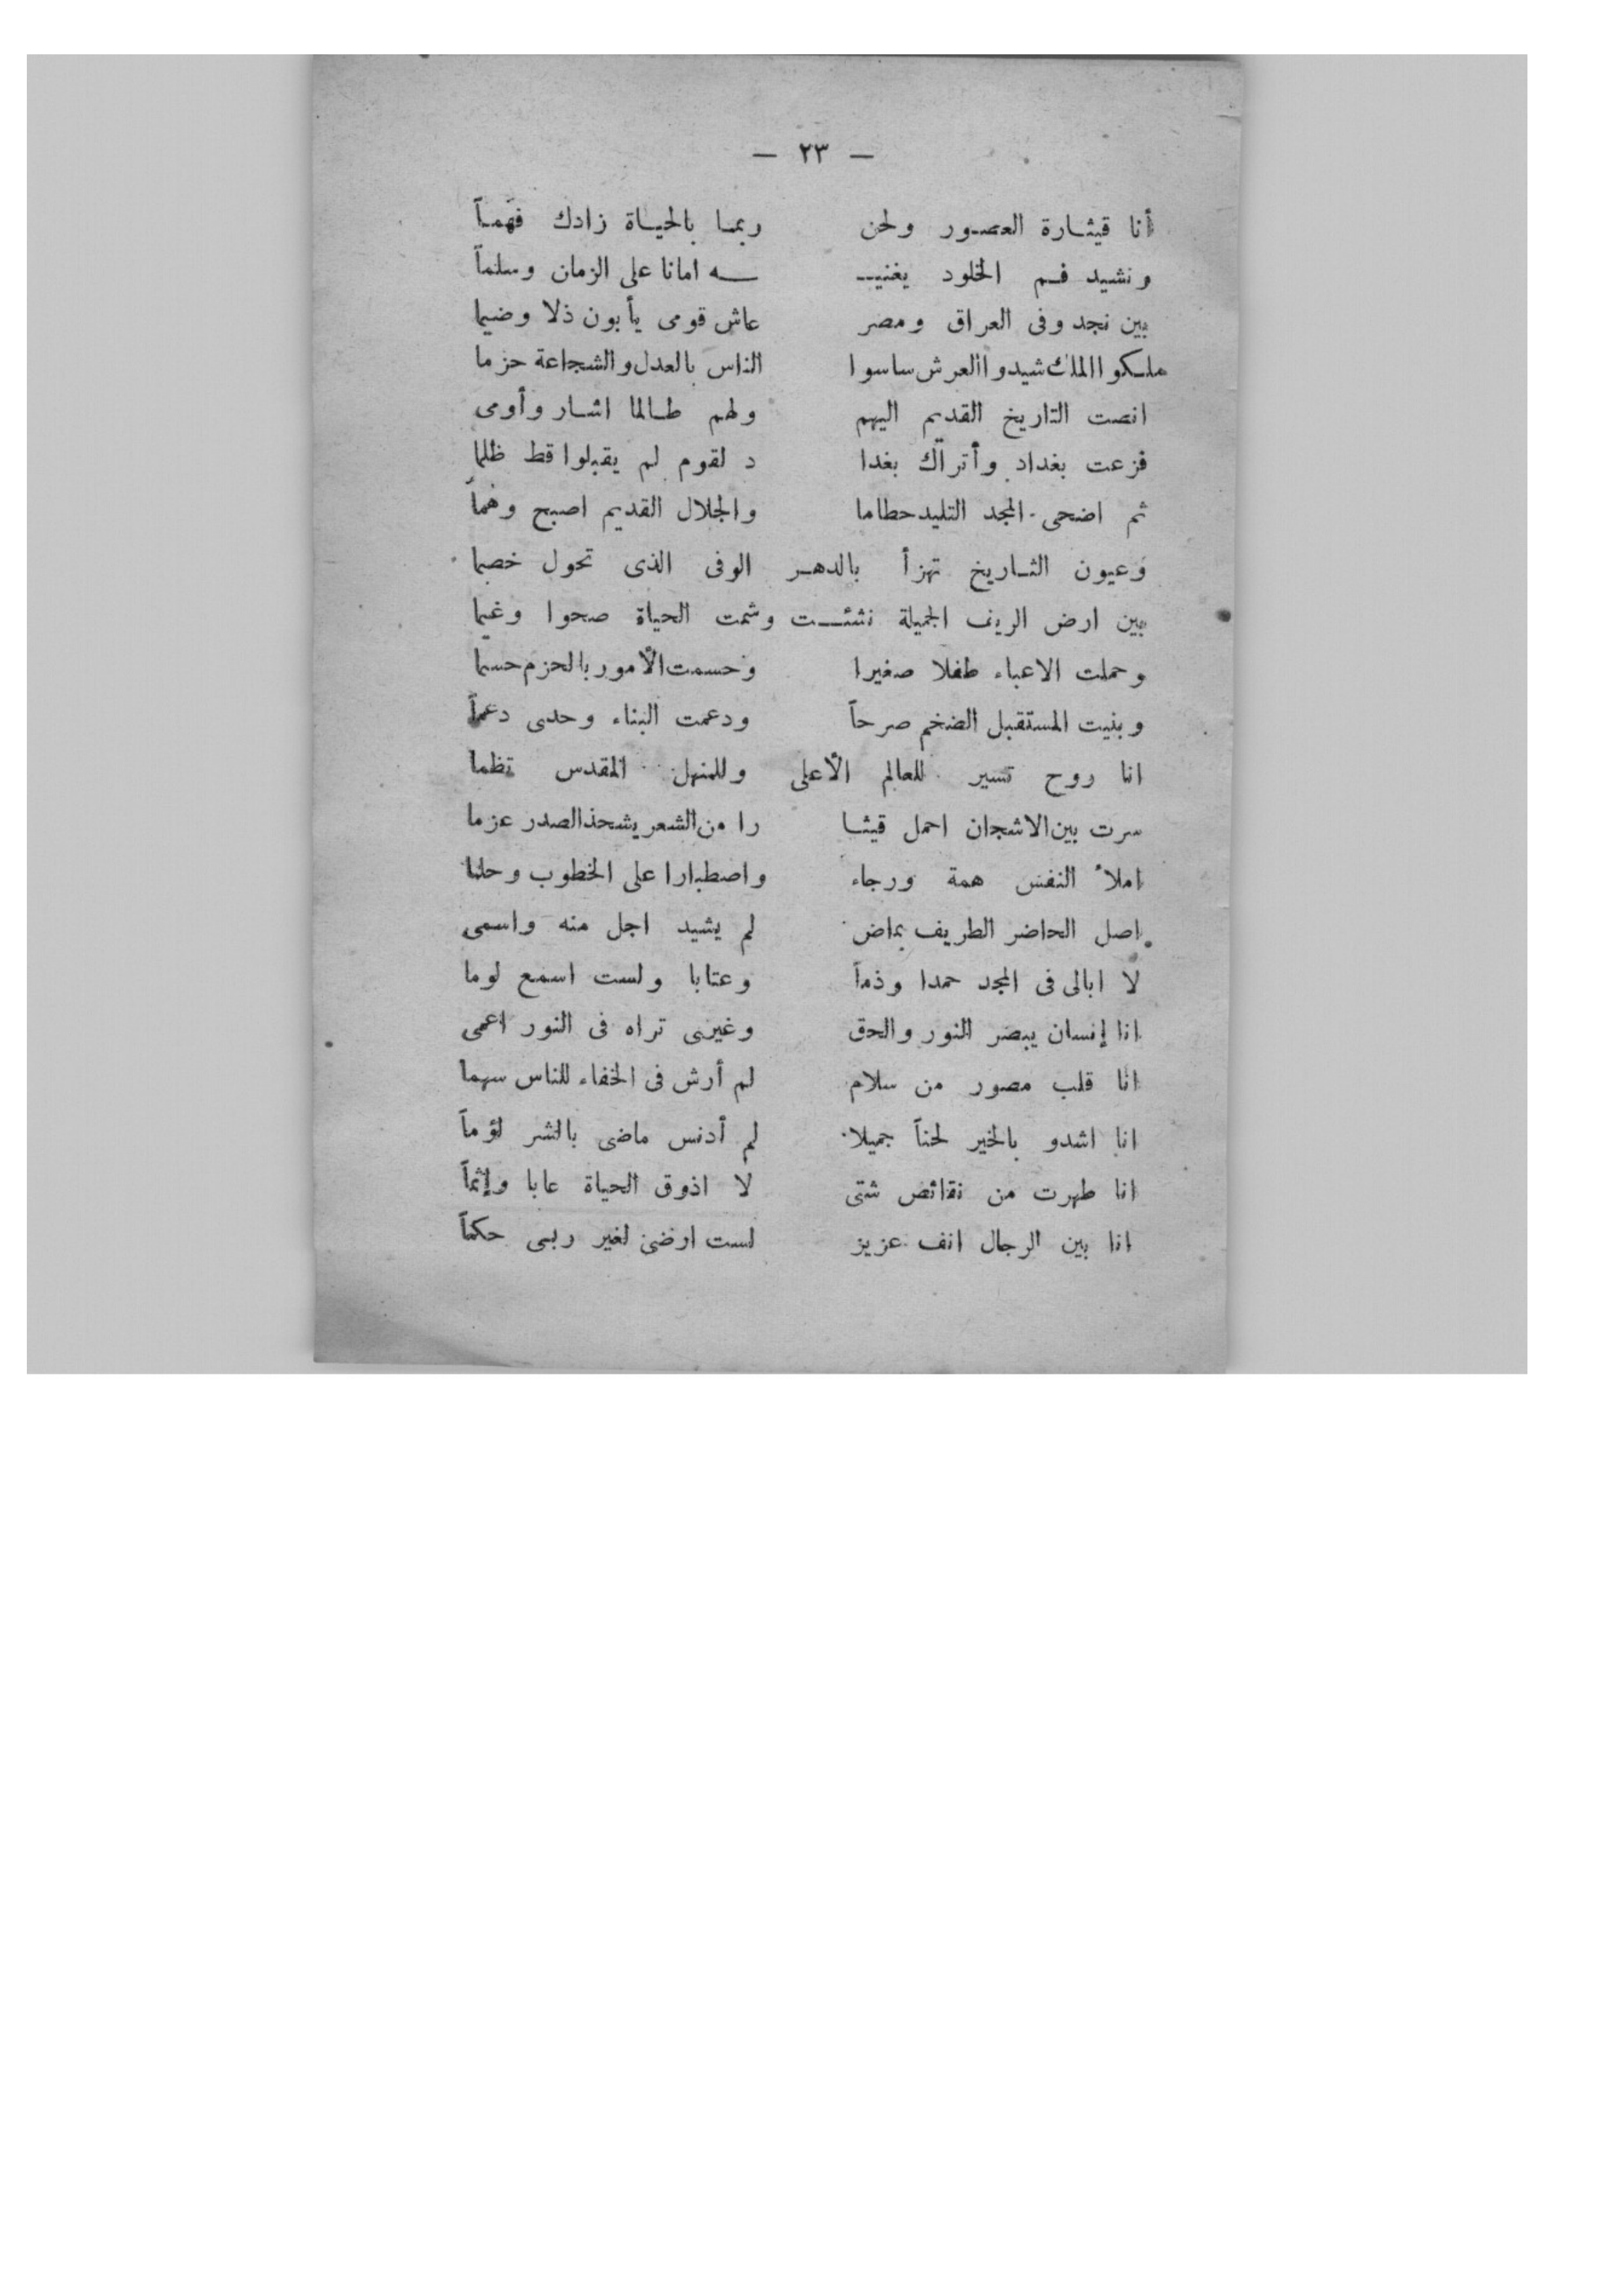 — ٢٣ —
أنا قيثارة العصور ولحن ربما بالحياة زادك فهماً
ونشيد فم الخلود يغنيـ ـه امانا على الزمان وسلماً
بين نجد وفى العراق ومصر عاش قومى يأبون ذلا وضيما
ملكوا الملك شيدوا العرش ساسوا الناس بالعدل والشجاعة حزما
انصت التاريخ القديم اليهم ولهم طالما اشار وأومى
فزعت بغداد وأتراك بغدا د لقوم لم يقبلوا قط ظلما
ثم اضحى المجد التليد حطاما والجلال القديم اصبح وهماً
وعيون التاريخ تهزأ بالدهر الوفى الذى تحول خصما
بين ارض الريف الجميلة نشئت وشمت الحياة صحوا وغيما
وحملت الاعباء طفلا صغيرا وحسمت الأمور بالحزم حسما
وبنيت المستقبل الضخم صرحاً ودعمت البناء وحدى دعماً
انا روح تسير للعالم الأعلى وللمنهل المقدس تظما
سرت بين الاشجان احمل قيثا را من الشعر يشحذ الصدر عزما
املأ النفس همة ورجاء واصطبارا على الخطوب وحلما
اصل الحاضر الطريف بماض لم يشيد اجل منه واسمى
لا ابالى فى المجد حمدا وذماً وعتابا ولست اسمع لوما
انا إنسان يبصر النور والحق وغيرى تراه فى النور اعمى
انا قلب مصور من سلام لم أرش فى الخفاء للناس سهما
انا اشدو بالخير لحناً جميلا لم أدنس ماضى بالشر لؤماً
انا طهرت من نقائص شتى لا اذوق الحياة عابا وإثماً
انا بين الرجال انف عزيز لست ارضى لغير ربى حكماً